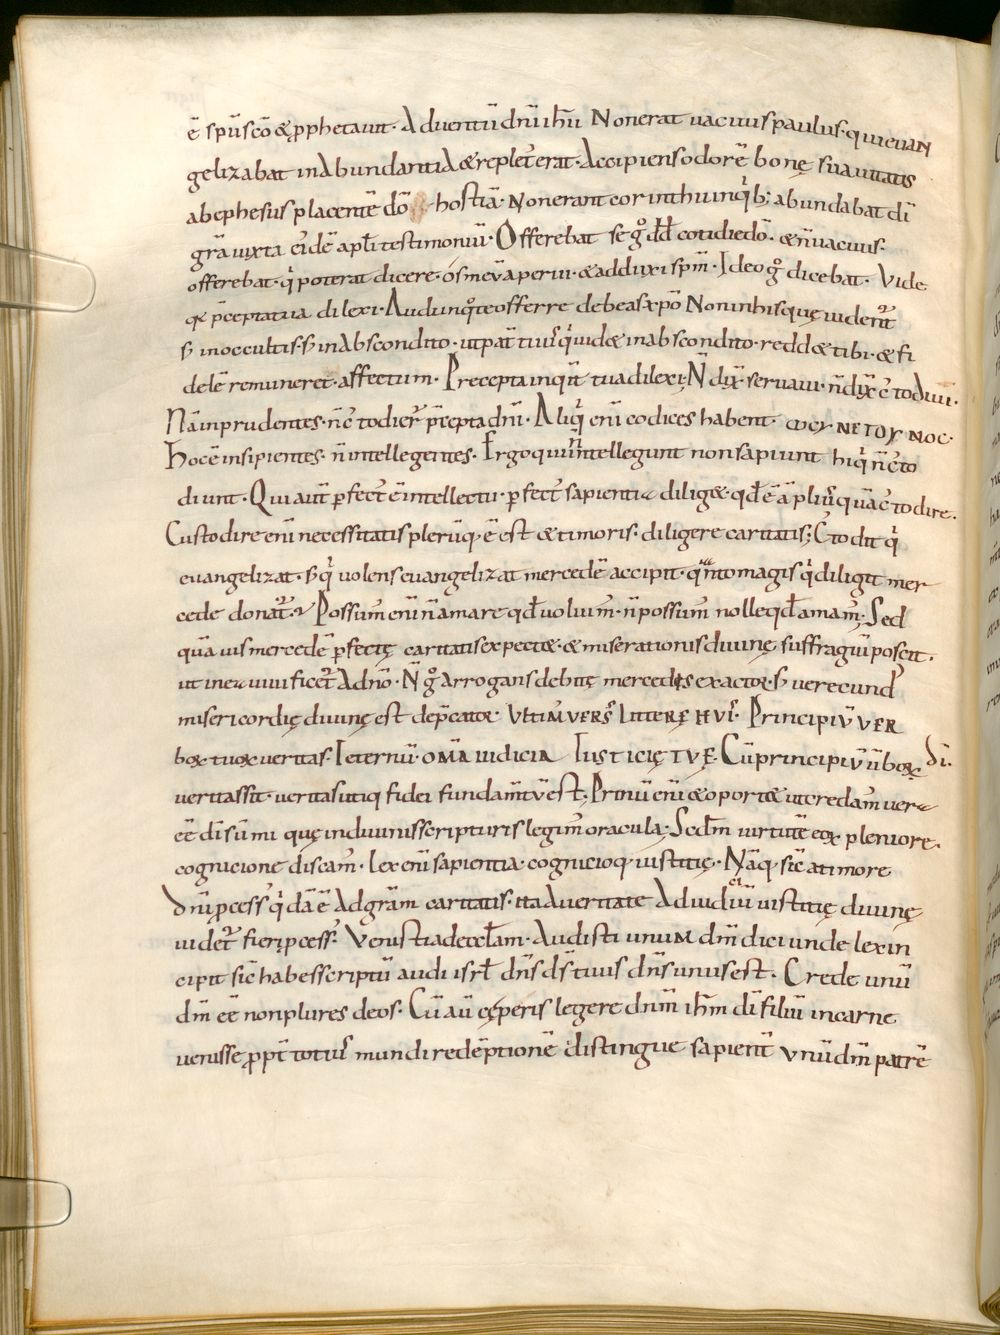 ē sp̄uscō & ꝓphetaut· Aduentū dn̄i ihū Nonerat uacuuspaulus· quieuaN
gelizabat inAbundantiA & repleterat· Accipiensodorē bonę suauitatis
abephesus placentē dō hostiā· Nonerant corinthii inqͥb; abundabat dī
gr̄a iuxta eīdē apl̄i testimoniū· Offerebat se gͦ dd̄ cotidiedō· & n̄uacuus·
offerebat· qͥ poterat dicere· ósmeūaperui· & adduxi spm̄· Ideogͦ dicebat· Vide
qꝛ p̄ceptatua dilexi· Audi unqͦteofferre debeas & pō Noninhisquę uident̄
s̄ inoccultis· s̄ inAbscondito· utpat̄ tuus qͥ uid& inabscondito· redd& tibi· & fi
delē remuneret· affectum· Precepta inqͥt tuadilexi· N̄ dix̄ seruaui· n̄dix̄ c̄todiui·
Nā inprudentes· n̄ c̄todier̄ p̄cepta dn̄i· Aliqͥ enī codices habent· ϲυΝΕΤΟΥΝΟC·
Hocē insipientes· n̄ intellegentes· Ergo qui n̄ intellegunt nonsapiunt hiqͥ n̄ c̄to
diunt· Qui aut̄ ꝑfect̄ ē intellectu· ꝑfect̄ sapientia dilig&· qd̄ ē ā plus quā c̄todire·
Custodire enī necessitatis plerūq· ē est & timoris· diligere caritatis; C̄todit qͥ
euangelizat· s̄ qͥ uolens euangelizat mercedē accipit· quantomagis qͥ diligit mer
cede donat̄· Possum enī n̄ amare qd̄ uoluim· n̄ possum nolle qd̄ amam; Sed
quā uis mercedē ꝑfectę caritatis expect& & miserationis diuinę suffragiū poscit·
ut in ea uiuificet̄ Adnō· N̄ gͦ Arrogans debitę mercedis exactor· s̄ uerecund᾽
misericordię diuinę est dep̄cator VltiM VERS᾽ litteRE HVI᾽· Principiū VER
boꝝ tuoꝝ ueritas· Ieternū· OMA iudiciA IusticięTVE· Cū principiū ūboꝝ dī·
ueritassit· ueritas utiq fidei fundam̄tū est; Primū enī & oport& ut credam uera
eē dī sūmi quę in diuinisscripturis legim oracula; Scdm̄ uirtutē eoꝝ pleniore·
cognicione discam· Lex enī sapientia· cognicioq iustitię· Nāq sic̄ atimore
dn̄i ꝓcess᾽ qͥ dā ē Adgr̄am caritatis· ita Aueritate Adiudiciū iustitię diuinę
uidet̄ fieri ꝓcess᾽· Venistiadecclam· Audisti unuM dm̄ dici unde lexin
cipit sic̄ habes scriptū audi isrl̄ dn̄s ds̄ tuus dn̄s unus est· Crede unū
dm̄ eē non plures deos· Cū aū cęperis legere dn̄m ihm̄ dī filiū incarne
uenisse ꝓpt̄ totius mundi redēptionē distingue sapient̄ Vnūdm̄ patrē